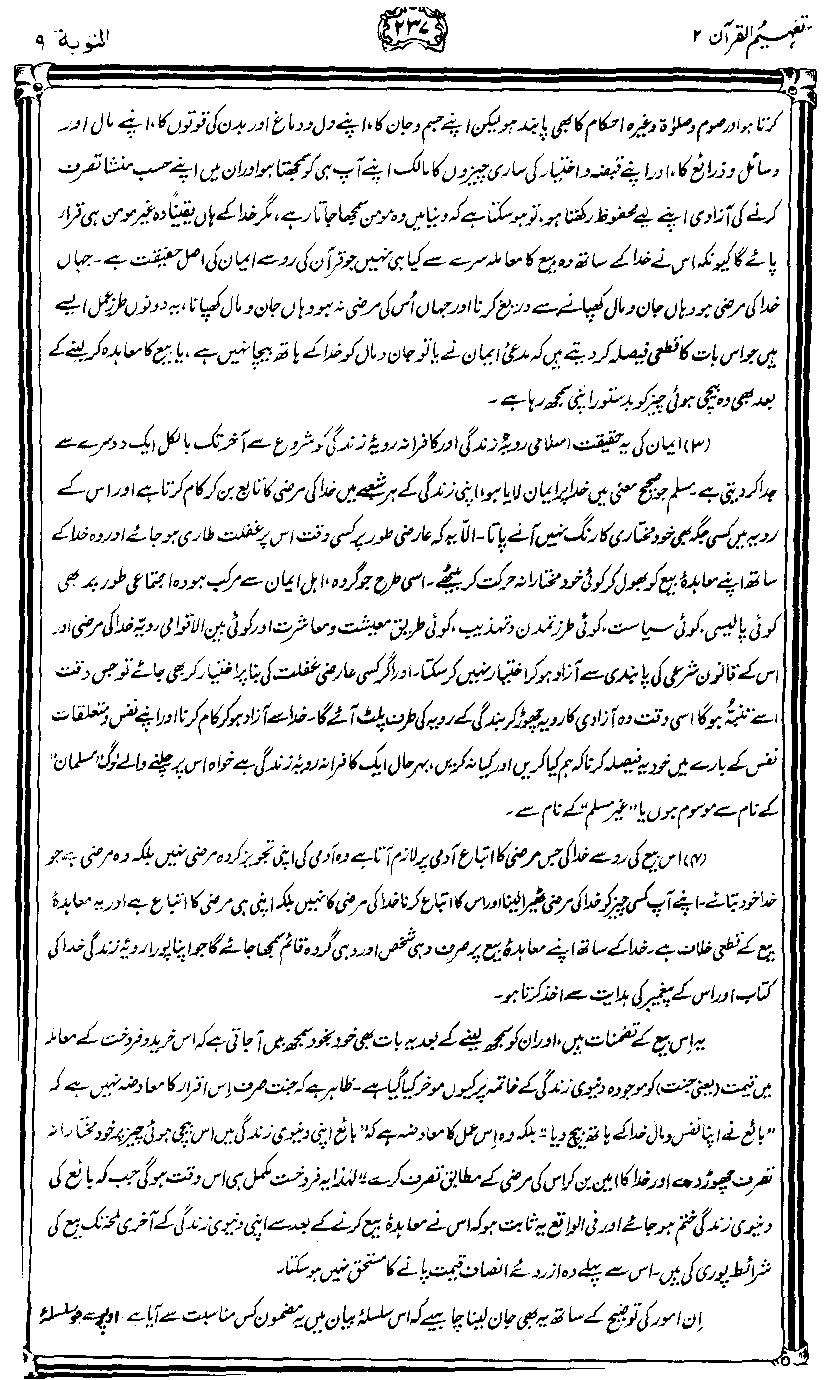 تفہیم القرآن ۲
۲۳۷
التوبۃ ۹
کرتا ہو اور صوم و صلوٰۃ وغیرہ احکام کا بھی پابند ہو لیکن اپنے جسم و جان کا، اپنے دل و دماغ اور بدن کی قوتوں کا، اپنے مال اور
وسائل و ذرائع کا، اور اپنے قبضہ و اختیار کی ساری چیزوں کا مالک اپنے آپ ہی کو سمجھتا ہو اور ان میں اپنے حسب منشا تصرف
کرنے کی آزادی اپنے لیے محفوظ رکھتا ہو، تو ہو سکتا ہے کہ دنیا میں وہ مومن سمجھا جاتا رہے، مگر خدا کے ہاں یقیناً وہ غیر مومن ہی قرار
پائے گا کیونکہ اس نے خدا کے ساتھ وہ بیع کا معاملہ سرے سے کیا ہی نہیں جو قرآن کی رو سے ایمان کی اصل حقیقت ہے۔ جہاں
خدا کی مرضی ہو وہاں جان و مال کھپانے سے دریغ کرنا اور جہاں اُس کی مرضی نہ ہو وہاں جان و مال کھپانا، یہ دونوں طرز عمل ایسے
ہیں جو اس بات کا قطعی فیصلہ کر دیتے ہیں کہ مدعیٔ ایمان نے یا تو جان و مال کو خدا کے ہاتھ بیچا نہیں ہے، یا بیع کا معاہدہ کر لینے کے
بعد بھی وہ بیچی ہوئی چیز کو بدستور اپنی سمجھ رہا ہے۔
(۳) ایمان کی یہ حقیقت اسلامی رویۂ زندگی اور کافرانہ رویۂ زندگی کو شروع سے آخر تک بالکل ایک دوسرے سے
جدا کر دیتی ہے۔ مسلم جو صحیح معنی میں خدا پر ایمان لایا ہو، اپنی زندگی کے ہر شعبے میں خدا کی مرضی کا تابع بن کر کام کرتا ہے اور اس کے
رویہ میں کسی جگہ بھی خود مختاری کا رنگ نہیں آنے پاتا۔ الّا یہ کہ عارضی طور پر کسی وقت اس پر غفلت طاری ہو جائے اور وہ خدا کے
ساتھ اپنے معاہدۂ بیع کو بھول کر کوئی خود مختارانہ حرکت کر بیٹھے۔ اسی طرح جو گروہ، اہل ایمان سے مرکب ہو وہ اجتماعی طور پر بھی
کوئی پالیسی، کوئی سیاست، کوئی طرز تمدن و تہذیب، کوئی طریق معیشت و معاشرت اور کوئی بین الاقوامی رویہ خدا کی مرضی اور
اس کے قانون شرعی کی پابندی سے آزاد ہو کر اختیار نہیں کر سکتا۔ اور اگر کسی عارضی غفلت کی بنا پر اختیار کر بھی جائے تو جس وقت
اسے تنبُّہ ہو گا اسی وقت وہ آزادی کا رویہ چھوڑ کر بندگی کے رویہ کی طرف پلٹ آئے گا۔ خدا سے آزاد ہو کر کام کرنا اور اپنے نفس و متعلقات
نفس کے بارے میں خود یہ فیصلہ کرنا کہ ہم کیا کریں اور کیا نہ کریں، بہرحال ایک کافرانہ رویۂ زندگی ہے خواہ اس پر چلنے والے لوگ "مسلمان"
کے نام سے موسوم ہوں یا "غیر مسلم" کے نام سے۔
(۴) اس بیع کی رو سے خدا کی جس مرضی کا اتباع آدمی پر لازم آتا ہے وہ آدمی کی اپنی تجویز کردہ مرضی نہیں بلکہ وہ مرضی ہے جو
خدا خود بتائے۔ اپنے آپ کسی چیز کو خدا کی مرضی ٹھیرا لینا اور اس کا اتباع کرنا خدا کی مرضی کا نہیں بلکہ اپنی ہی مرضی کا اتباع ہے اور یہ معاہدۂ
بیع کے قطعی خلاف ہے۔ خدا کے ساتھ اپنے معاہدۂ بیع پر صرف وہی شخص اور وہی گروہ قائم سمجھا جائے گا جو اپنا پورا رویۂ زندگی خدا کی
کتاب اور اس کے پیغمبر کی ہدایت سے اخذ کرتا ہو۔
یہ اِس بیع کے تضمنات ہیں، اور ان کو سمجھ لینے کے بعد یہ بات بھی خود بخود سمجھ میں آ جاتی ہے کہ اس خرید و فروخت کے معاملہ
میں قیمت (یعنی جنت) کو موجودہ دنیوی زندگی کے خاتمہ پر کیوں موخر کیا گیا ہے۔ ظاہر ہے کہ جنت صرف اِس اقرار کا معاوضہ نہیں ہے کہ
"بائع نے اپنا نفس و مال خدا کے ہاتھ بیچ دیا" بلکہ وہ اِس عمل کا معاوضہ ہے کہ "بائع اپنی دنیوی زندگی میں اس بیچی ہوئی چیز پر خود مختارانہ
تصرف چھوڑ دے اور خدا کا امین بن کر اس کی مرضی کے مطابق تصرف کرے" لہٰذا یہ فروخت مکمل ہی اس وقت ہو گی جب کہ بائع کی
دنیوی زندگی ختم ہو جائے اور فی الواقع یہ ثابت ہو کہ اس نے معاہدۂ بیع کرنے کے بعد سے اپنی دنیوی زندگی کے آخری لمحہ تک بیع کی
شرائط پوری کی ہیں۔ اس سے پہلے وہ از روئے انصاف قیمت پانے کا مستحق نہیں ہو سکتا۔
اِن امور کی توضیح کے ساتھ یہ بھی جان لینا چاہیے کہ اس سلسلۂ بیان میں یہ مضمون کس مناسبت سے آیا ہے۔ اوپر سے جو سلسلۂ